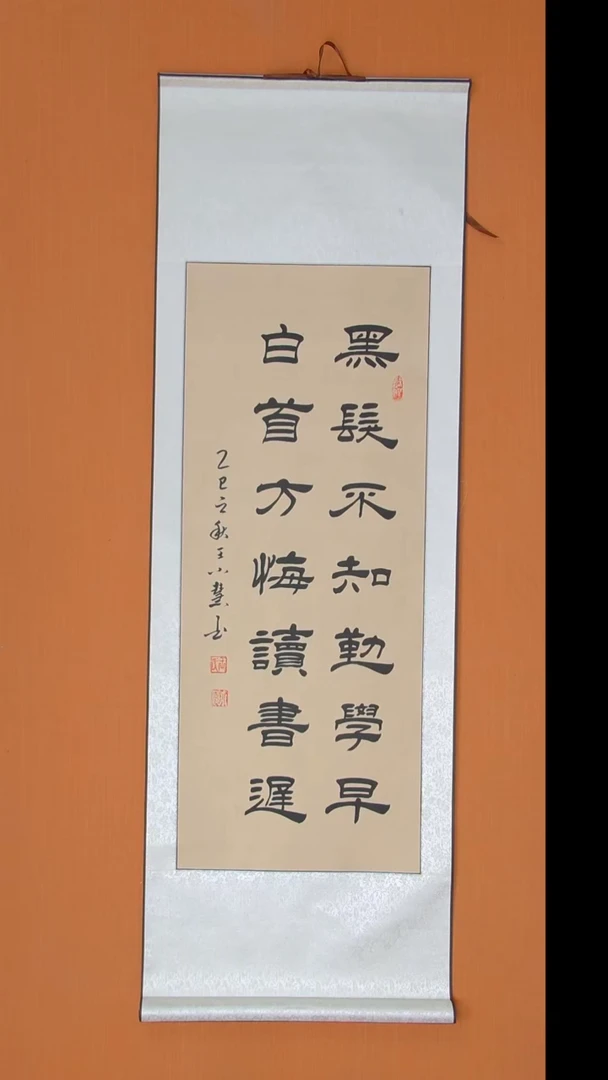 黑髮不知勤學早
白首方悔讀書遲
乙巳立秋王小慧書